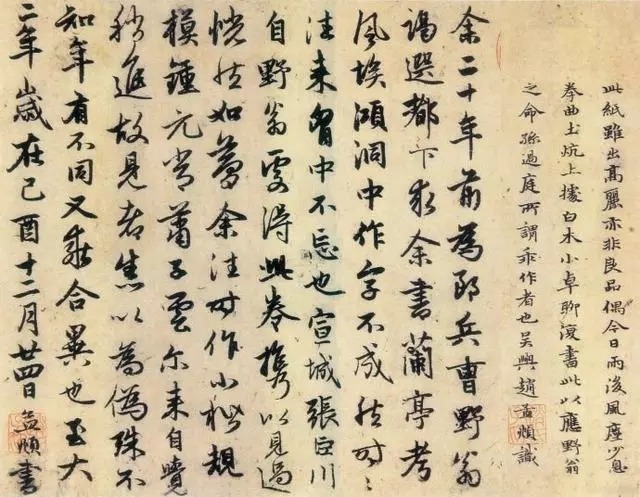 此紙雖出高麗亦非良品偶今日雨後風塵少息
拳曲土炕上據白木小卓聊復書此以應野翁
之命孫過庭所謂乖作者也吳興趙孟頫識
余二十年前為郎兵曹野翁
謁選都下求余書蘭亭考
風埃澒洞中作字不成然時〻
往来胷中不忘也宣城張巨川
自野翁處得此卷携以見過
恍然如夢余往時作小楷規
模鍾元常蕭子雲尔来自覺
稍進故見者悉以為偽殊不
知年有不同又乖合異也至大
二年歲在己酉十二月廿四日孟頫書